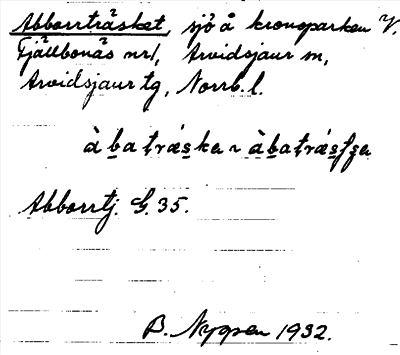 Abborrträsket, sjö å kronoparken V.
Fjällbonäs nr 1, Arvidsjaur sn,
Arvidsjaur tg, Norrb. l.
àbatráska ~ àbatrás
Abborrtj. G. 35.
B. Nygren 1932.